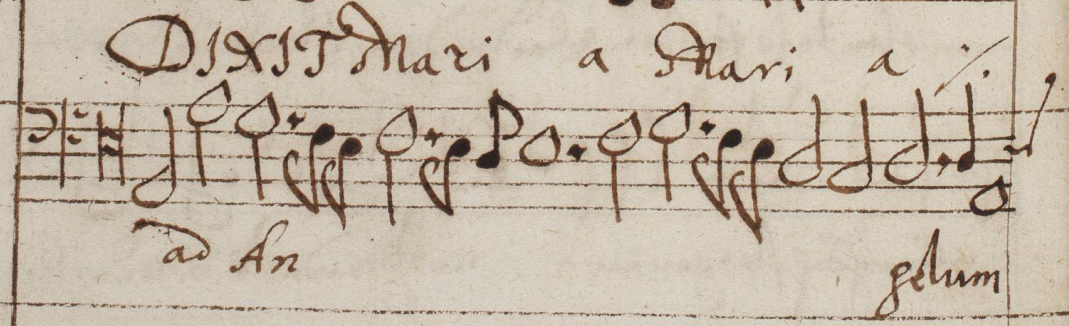 DIXIT Mari a Mari a ·/·
ad An gelum